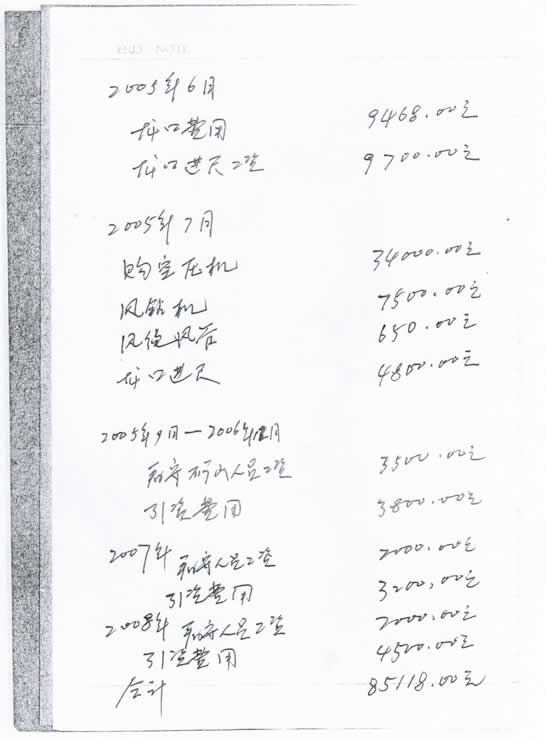 2005年6月
坑口费用 9468.00元
坑口进尺工资 9700.00元
2005年7月
购空压机 34000.00元
风钻机 7500.00元
风管 650.00元
坑口进尺 4800.00元
2005年9月—2006年12月
看守矿山人员工资 3500.00元
引资费用 3800.00元
2007年 看守人员工资 2000.00元
引资费用 3200.00元
2008年 看守人员工资 2000.00元
引资费用 4500.00元
合计 85118.00元